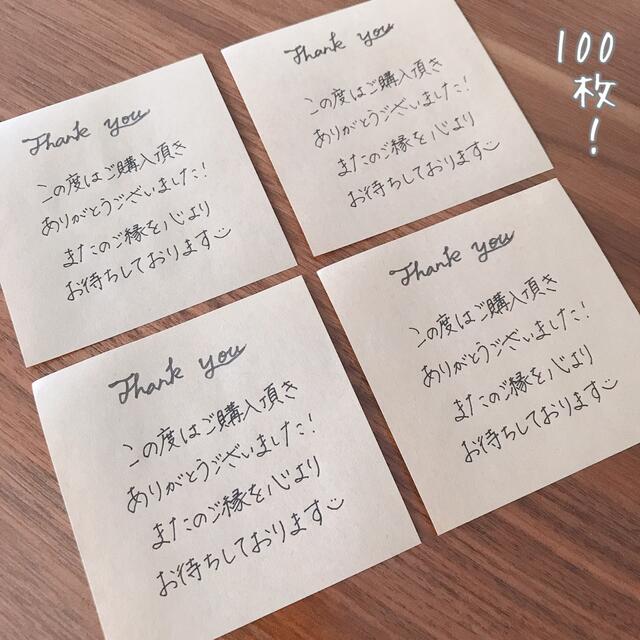 Thank you
この度はご購入頂き
ありがとうございました!
またのご縁を心より
お待ちしております
Thank you
この度はご購入頂き
ありがとうございました!
またのご縁を心より
お待ちしております
Thank you
この度はご購入頂き
ありがとうございました!
またのご縁を心より
お待ちしております
Thank you
この度はご購入頂き
ありがとうございました!
またのご縁を心より
お待ちしております
100
枚
!